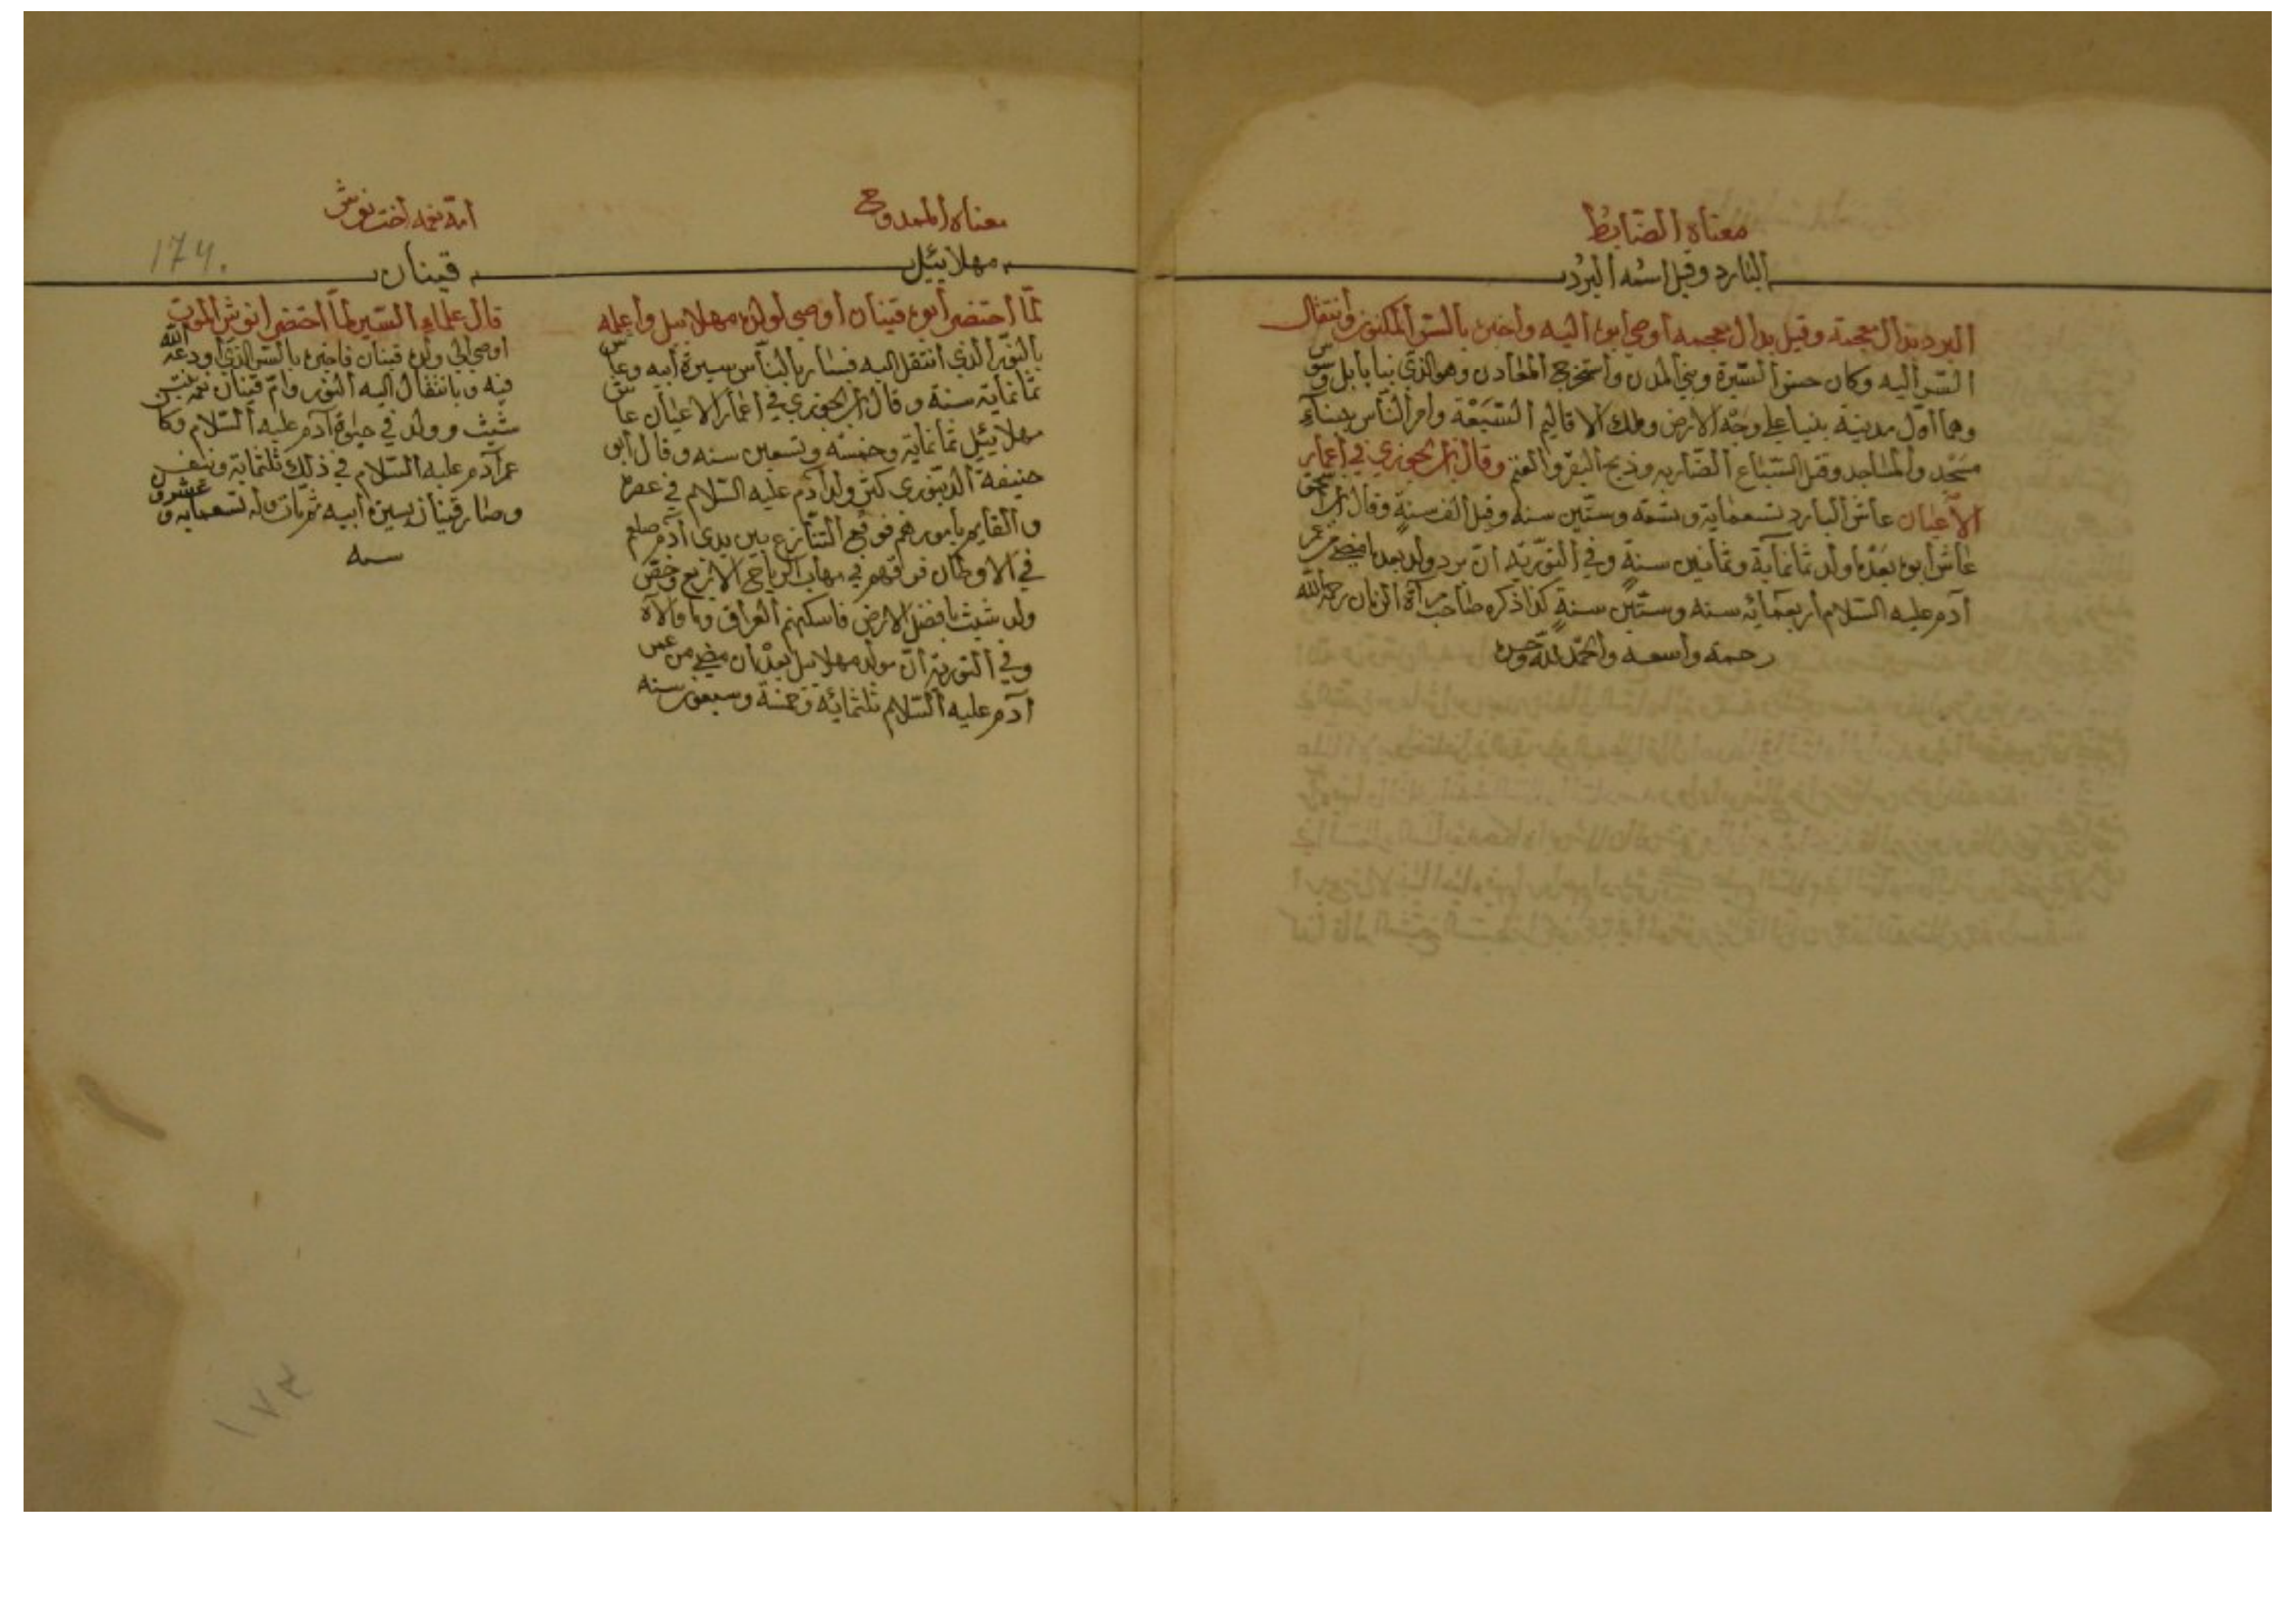 معناه الضابط
اليارد وقيل اسمه اليرد
اليرد بدال معجمة وقيل بدال معجمه أوصى ابوه اليه واخبره بالسر المكنون وانتقال
السر اليه وكان حسن السيرة وبنى المدن واستخرج المعادن وهو الذي بنا بابل وسوس
وهما أول مدينة بنيا على وجه الارض وملك الاقاليم السبعة وامر الناس ببناء
مسجد والمساجد وقتل السباع الضاريه وذبح البقر والغنم وقال ابن الجوزي في أعمار
الأعيان عاش اليارد تسعمايه وتسعة وستين سنه وقيل ألف سنة وقال ابن اسحق
عاش ابوه بعدما ولد ثمانماية وثمانين سنة وفي التورية ان يرد ولد بعد ما مضى من عمر
آدم عليه السلام اربعمائه سنه وستين سنة كذا ذكره صاحب مرآة الزمان رحمه الله
رحمة واسعه والحمد لله وحده
معناه الممدوح
مهلائيل
لما احتضر أبوه قينان أوصى لولده مهلاييل وأعلمه
بالنور الذي انتقل اليه فسار بالناس سيرة أبيه وعاش
ثمانماية سنة وقال ابن الجوزي في أعمار الاعيان عاش
مهلائيل ثمانماية وخمسه وتسعين سنه وقال أبو
حنيفة الدينوري كثر ولد آدم عليه السلام في عصره
والقايم بأمورهم فوقع التنازع بين يدي آدم صلعم
في الاوطان ففرقهم في مهاب الرياح الاربع وخص
ولد شيث بافضل الارض فاسكنهم العراق وما والاه
وفي التورية أن مولد مهلاييل بعد أن مضى من عمر
آدم عليه السلام ثلثمائه وخمسة وسبعون سنه
امه نعمه أخت نوش
قينان
174.
قال علماء السير لما احتضر انوش الموت
اوصى الى ولده قينان فاخبره بالسر الذي أودعه الله
فيه وبانتقال اليه النور وام قينان نعمه بنت
شيث وولد في حيوة آدم عليه السلام وكان
عمر آدم عليه السلام في ذلك ثلثماية
وصار قينان بسيرة أبيه ثم مات وله تسعمايه وعشرون
سنه
١٧٣